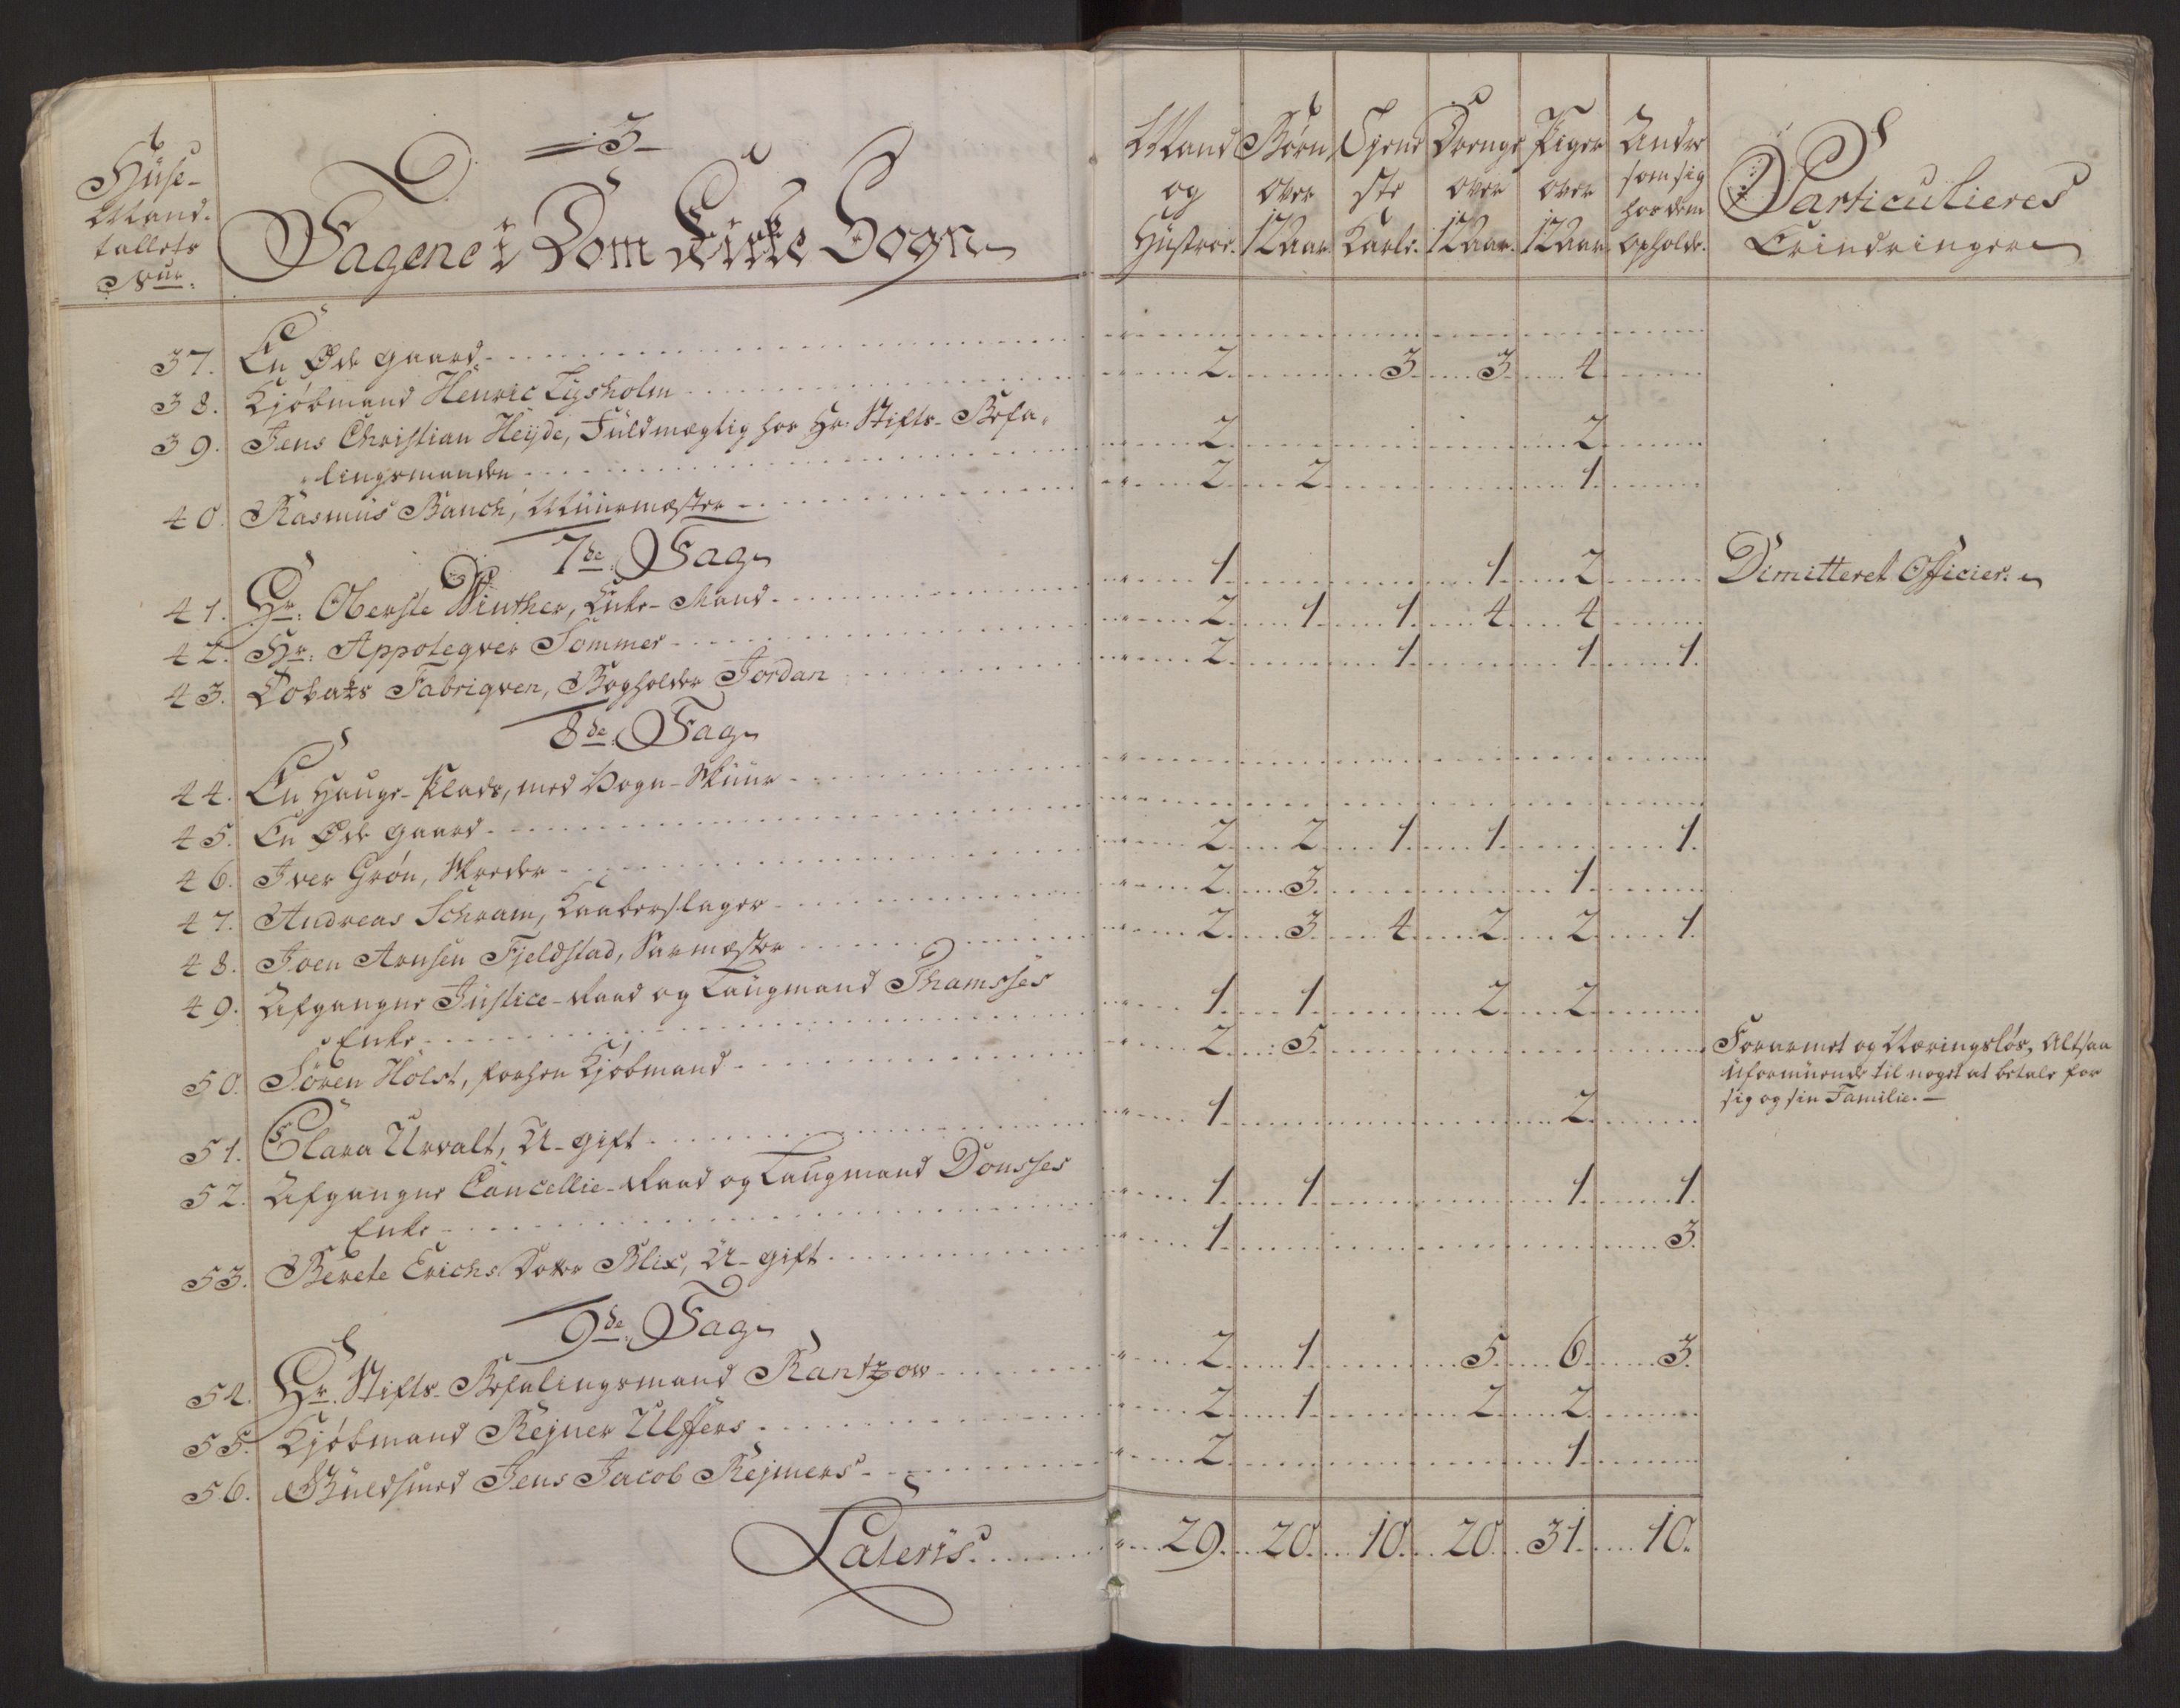 3
Huse-
Mand-
tallets
Nur:
Tagene i Dom Kirke Sogn
Mand og Hustroe.
Børn over 12 Aar.
Tjeneste Karle.
Drenge over 12 Aar.
Piger over 12 Aar.
Andre som sig hos dem opholde.
Particulieres Erindringer
37. En Øde gaard
38. Kjøbmand Henric Lysholm 2. 3. 3. 4.
39. Jens Christian Heyde, Fuldmægtig hos Hr. Stifts-Befa-
lingsmanden 2. 2.
40. Rasmus Bauch, Muurmæster 2. 2. 1.
7de Tag
41. Hr: Oberste Winther, Enke-Mand 1. 1. 2. Dimitteret Officier.
42. Hr: Appoteqver Sommer 2. 1. 1. 4. 4.
43. Tobaks Fabriqven, Bogholder Jordan 2. 1. 1. 1.
8de Tag
44. En Hauge-Plads, med Vogn-Skuur
45. En Øde gaard
46. Iver Grøn, Skreder 2. 2. 1. 1. 1.
47. Andreas Schram, Kaaberslager 2. 3. 1.
48. Joen Arnsen Fjeldstad, Garmæster 2. 3. 4. 2. 2. 1.
49. Afgangne Justice-Raad og Laugmand Thamsses
Enke 1. 1. 2. 2.
50. Søren Holst, forhen Kjøbmand 2. 5. Forarmet og Næringsløs, Altsaa
uformuende til noget at betale for
sig og sin Familie.
51. Clara Urvalt, U-gift 1. 2.
52. Afgangne Cancellie-Raad og Laugmand Donsses
Enke 1. 1. 1. 1.
53. Berete Erichs Dotter Blix, U-gift 1. 3.
9de Tag
54. Hr. Stifts-Befalingsmand Rantzow 2. 1. 5. 6. 3.
55. Kjøbmand Rejner Ulffers 2. 1. 2. 2.
56. Guldsmed Jens Jacob Rejmers 2. 1.
Lateris 29. 20. 10. 20. 31. 10.